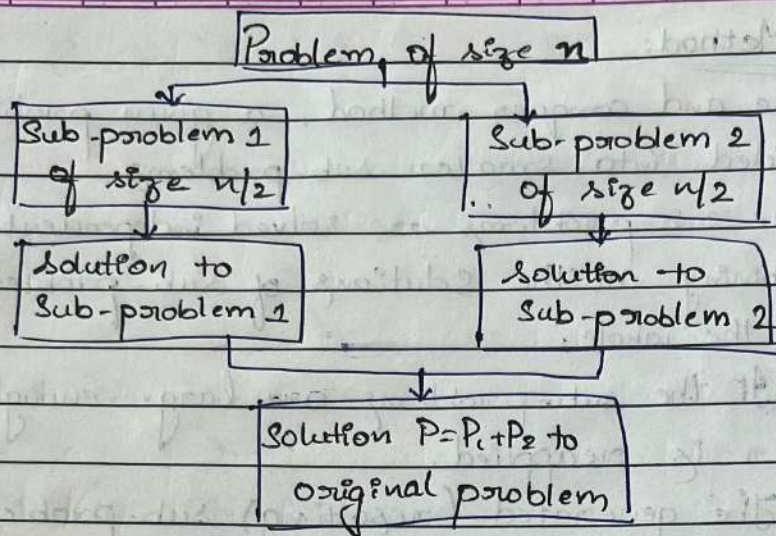 Problem of size n
Sub-problem 1
of size n/2
Sub-problem 2
of size n/2
Solution to
Sub-problem 1
Solution to
Sub-problem 2
Solution P=P₁+P₂ to
original problem